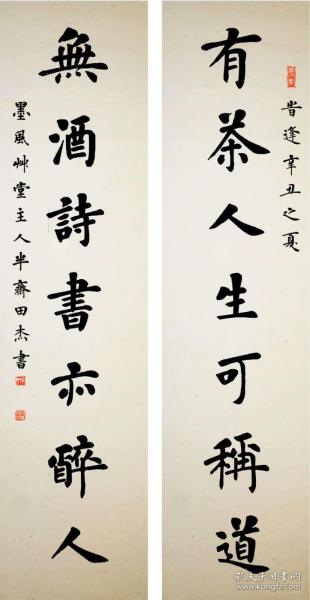 有茶人生可稱道
時逢辛丑之夏
無酒詩書亦醉人
墨風艸堂主人半齋田杰書
孔夫子旧书网